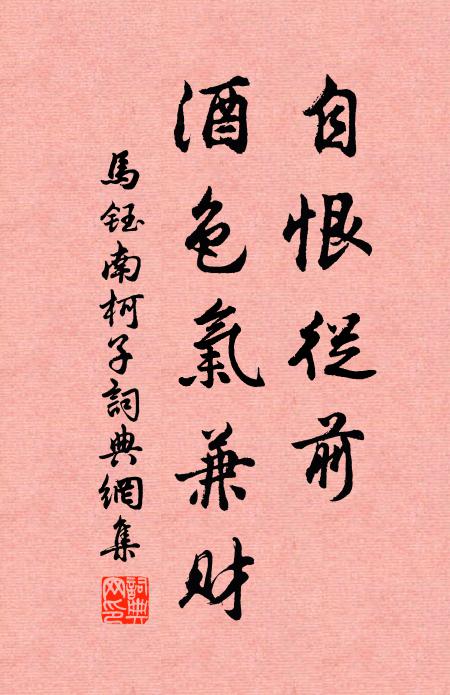 自恨從前
酒色氣兼財
馬鈺南柯子詞典網集
詞典
网印